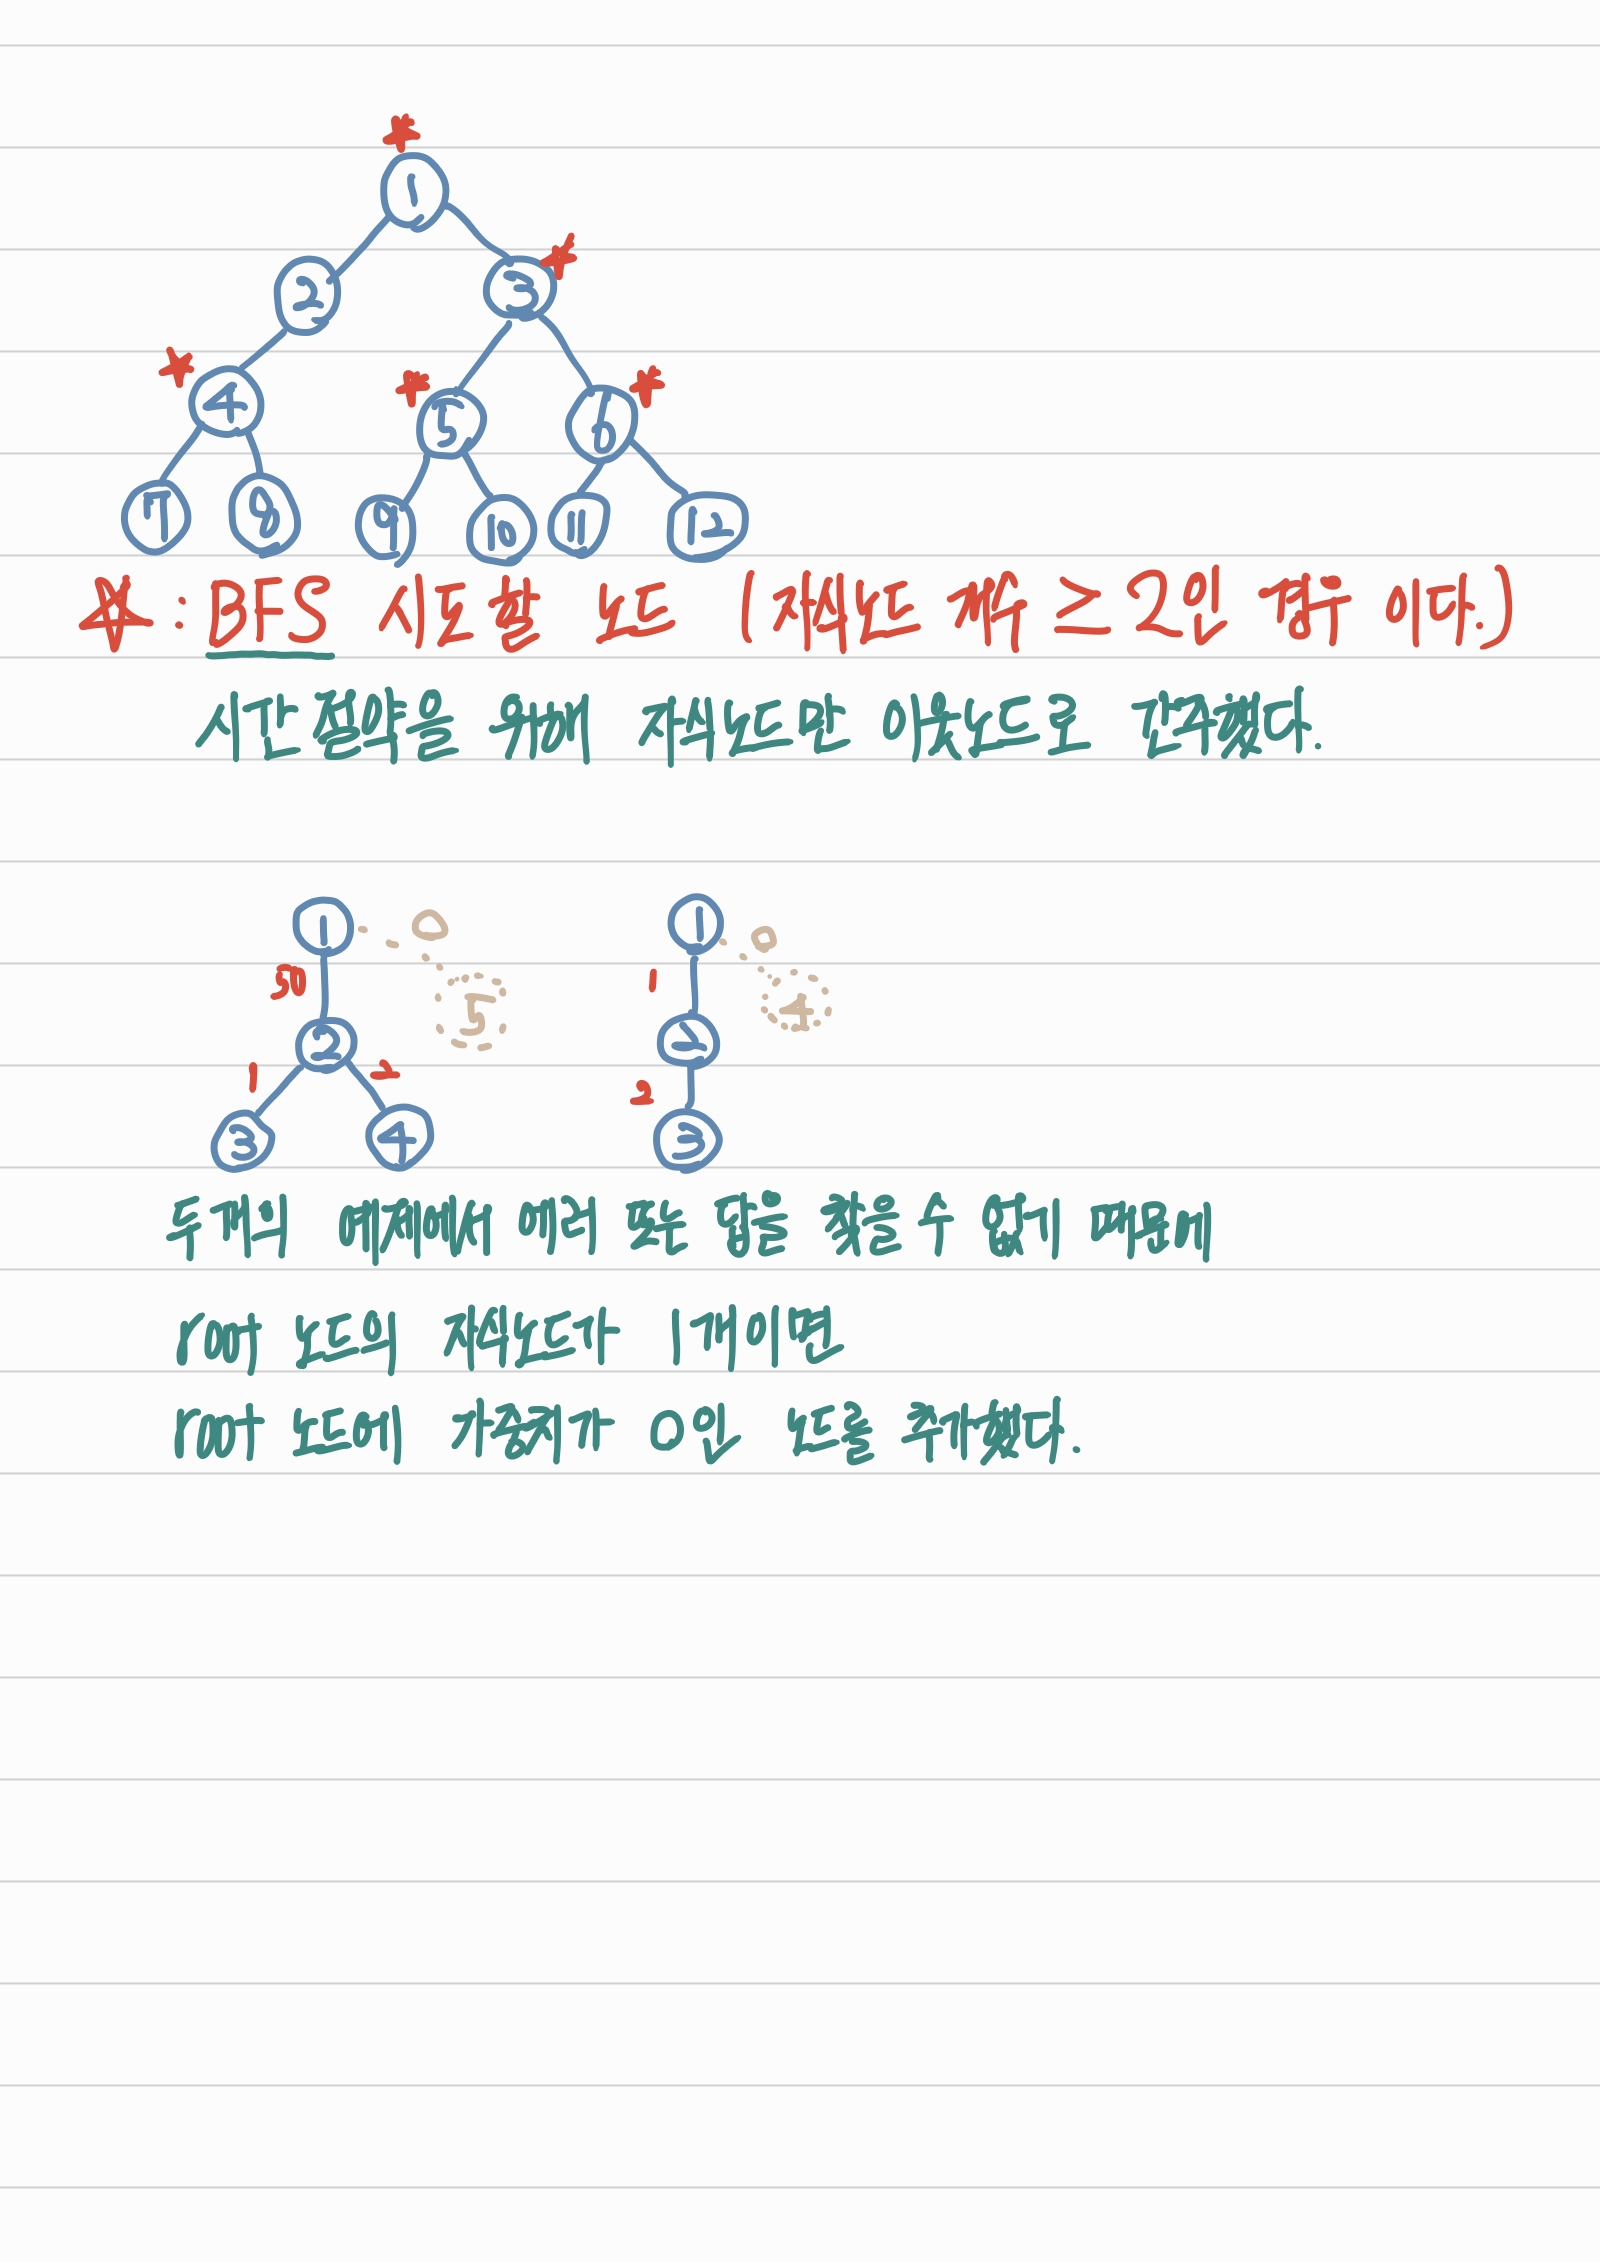 1
2 3
4 5 6
7 8 9 10 11 12
☆ : BFS 시도할 노드 (자식노드 개수 ≥ 2인 경우 이다.)
시간 절약을 위해 자식노드만 이웃노드로 간주했다.
1 0 1 0
50 5 1 4
2 2
1 2 2
3 4 3
두개의 예제에서 에러 또는 답을 찾을 수 없기 때문에
root 노드의 자식노드가 1개이면
root 노드에 가중치가 0인 노드를 추가했다.